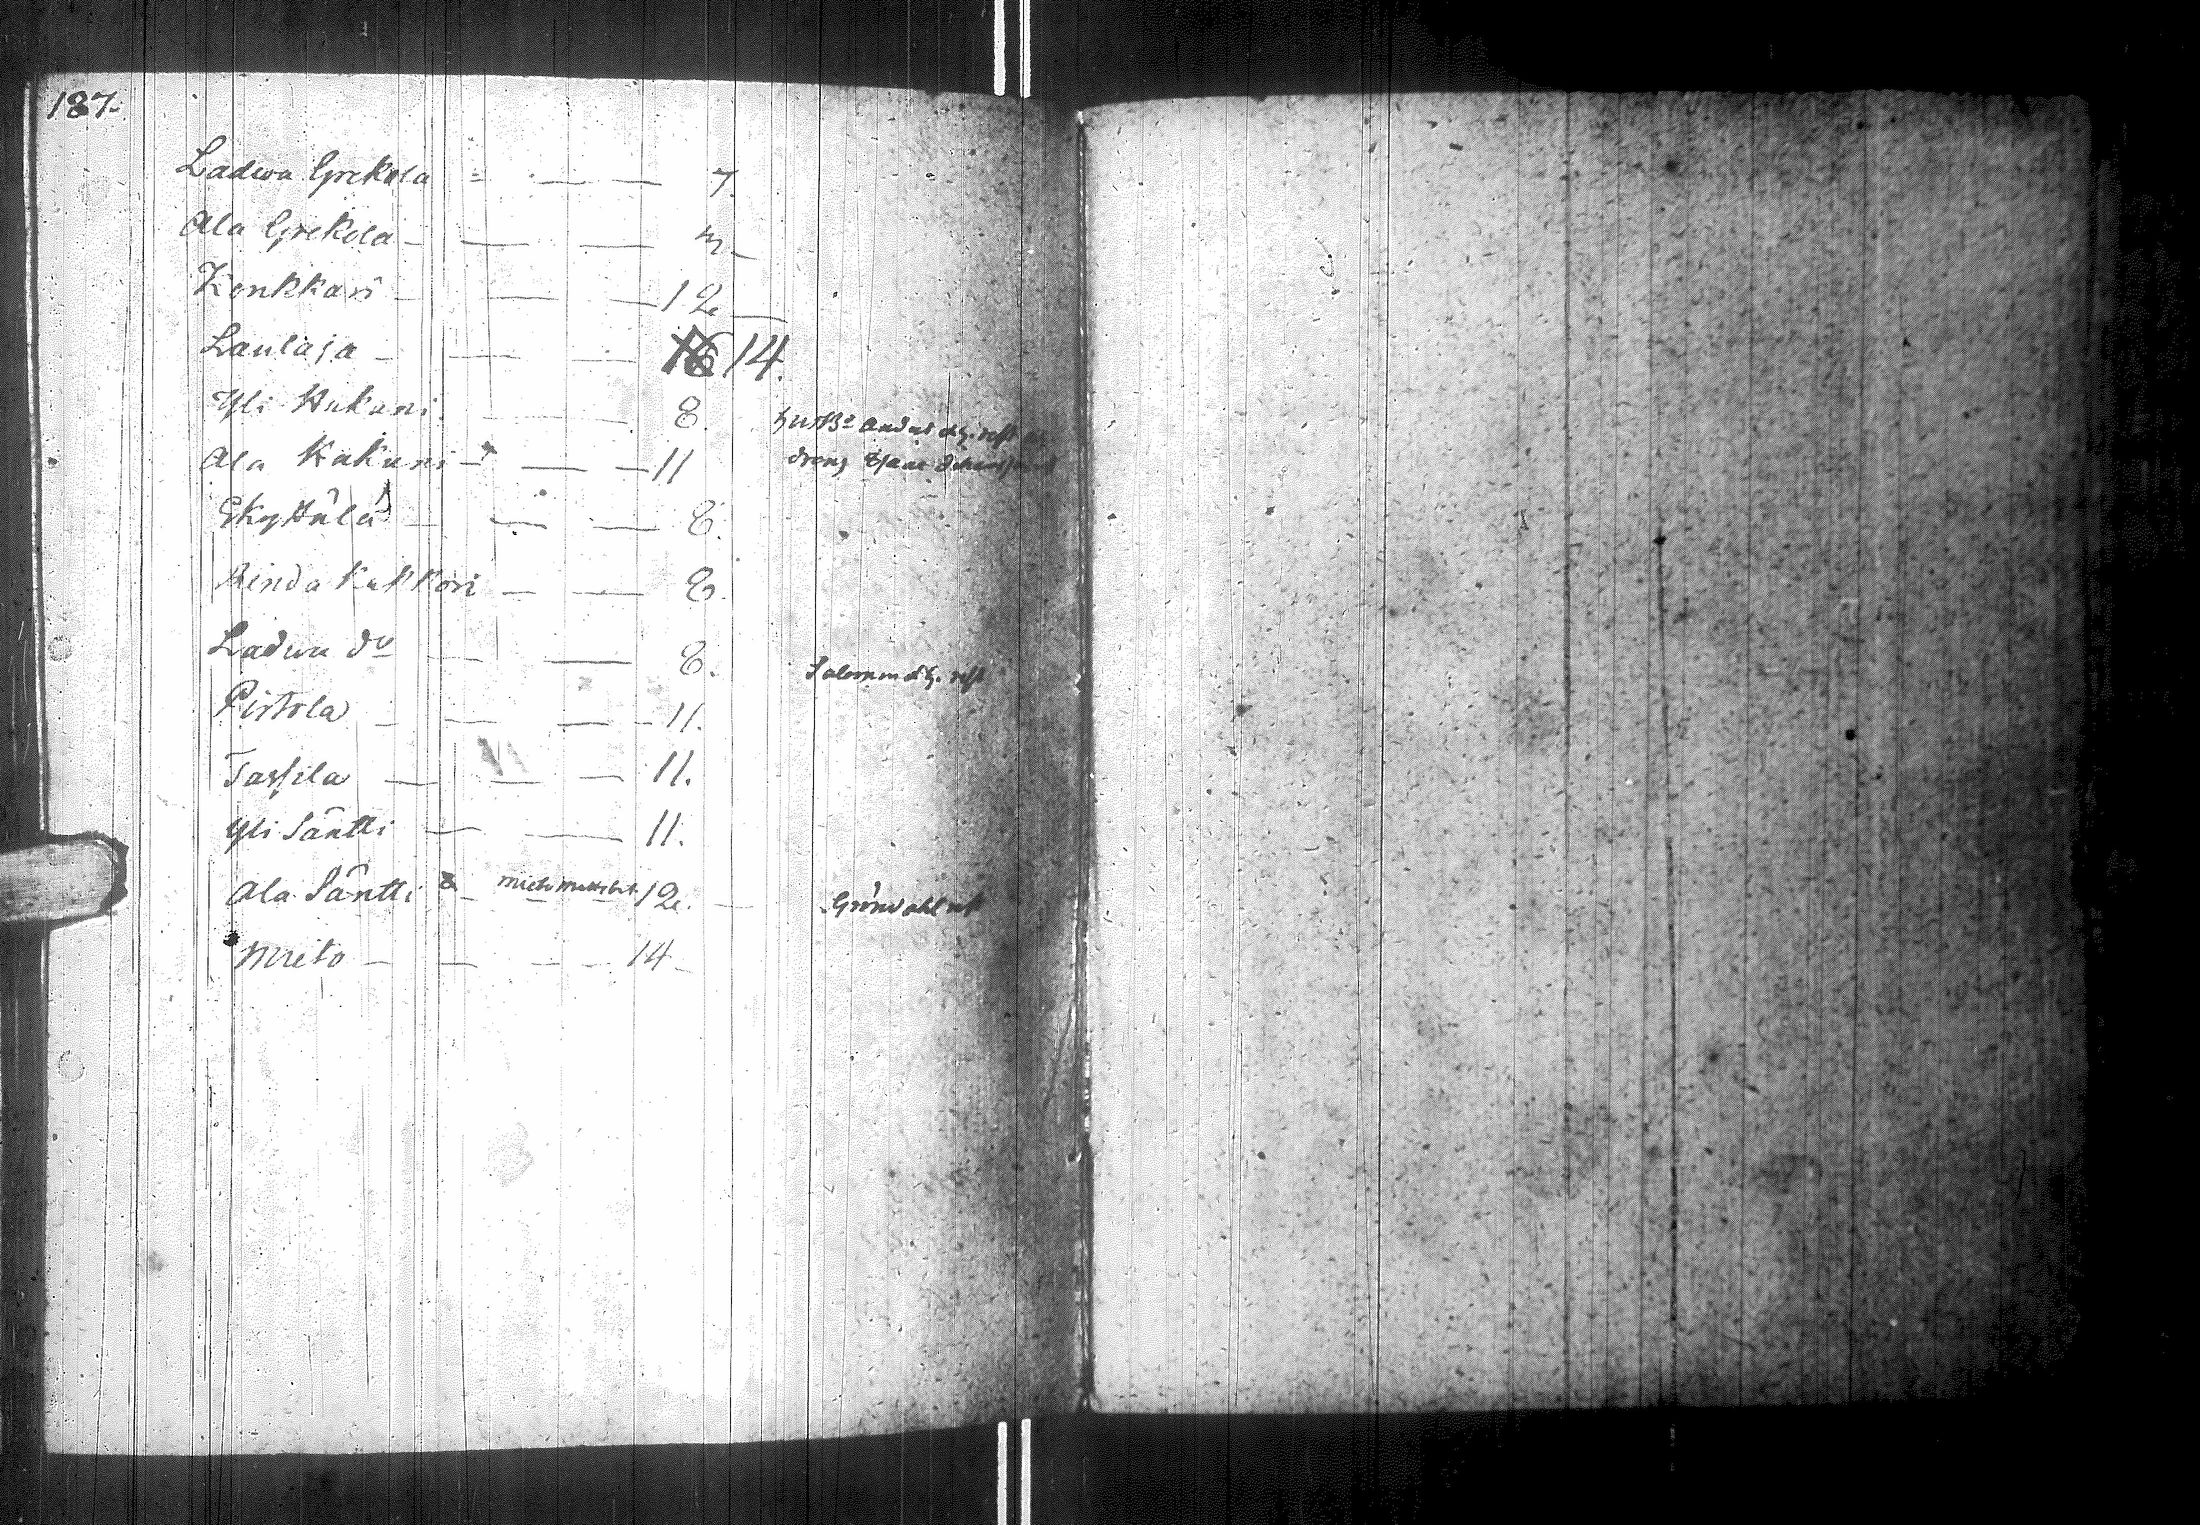 187.
Ladwa Grekola - - - - 7.
Ala Grekola - - - 3
Konkkari - - - 12
Laulaja - - - 14.
Yli Kukuni - - 8.
Ala Kukuni - - - 11
dreng
Skyttälä - - - 8.
Renda Kukkori - - 8.
Ladwa do - - 8.
Salomon
Pistola - - - - 11.
Tassila - - - 11.
Yli Säntti - - 11.
Ala Säntti 12.
Gröndahl
Mieto - - - - 14